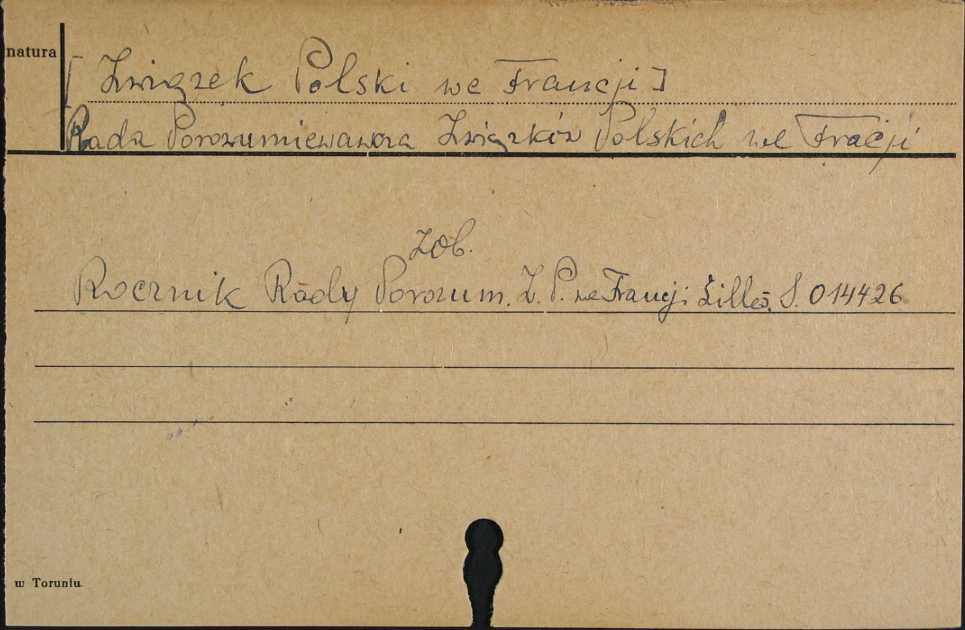 natura
[Związek Polski we Francji]
Rada Porozumiewawcza Związków Polskich we Fracji
zob.
Rocznik Rady Porozum. Z. P. we Francji Lilles. S. 014426
w Toruniu.